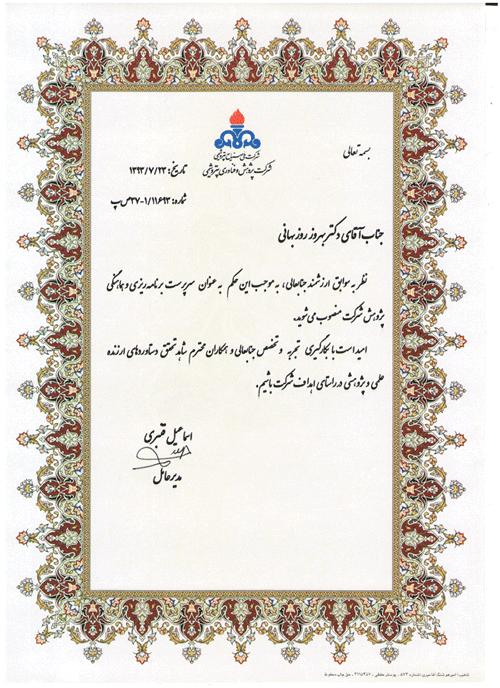 بسمه تعالی
شرکت ملی صنایع پتروشیمی
شرکت پژوهش و فناوری پتروشیمی
تاریخ: ۱۳۹۳/۷/۲۳
شماره: ۱/۱۱۶۹۳-۳۷ص پ
جناب آقای دکتر بهروز روزبهانی
نظر به سوابق ارزشمند جنابعالی، به موجب این حکم به عنوان سرپرست برنامه ریزی و هماهنگی
پژوهش شرکت منصوب می شوید.
امید است با بکارگیری تجربه و تخصص جنابعالی و همکاران محترم شاهد تحقق دستاوردهای ارزنده
علمی و پژوهشی در راستای اهداف شرکت باشیم.
اسماعیل قنبری
مدیرعامل